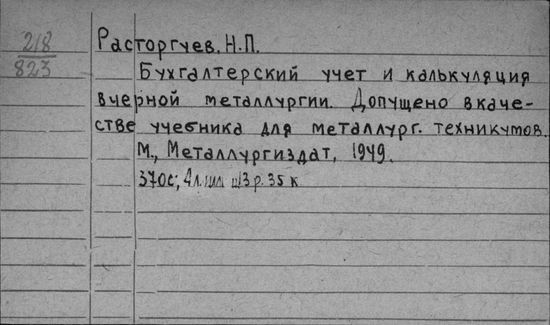 218
823
Расторгуев. Н.П.
Бухгалтерский учет и калькуляция
в черной металлургии. Допущено в каче-
стве учебника для металлург. техникумов.
М., Металлургиздат, 1949.
370с; 13 р. 35 к